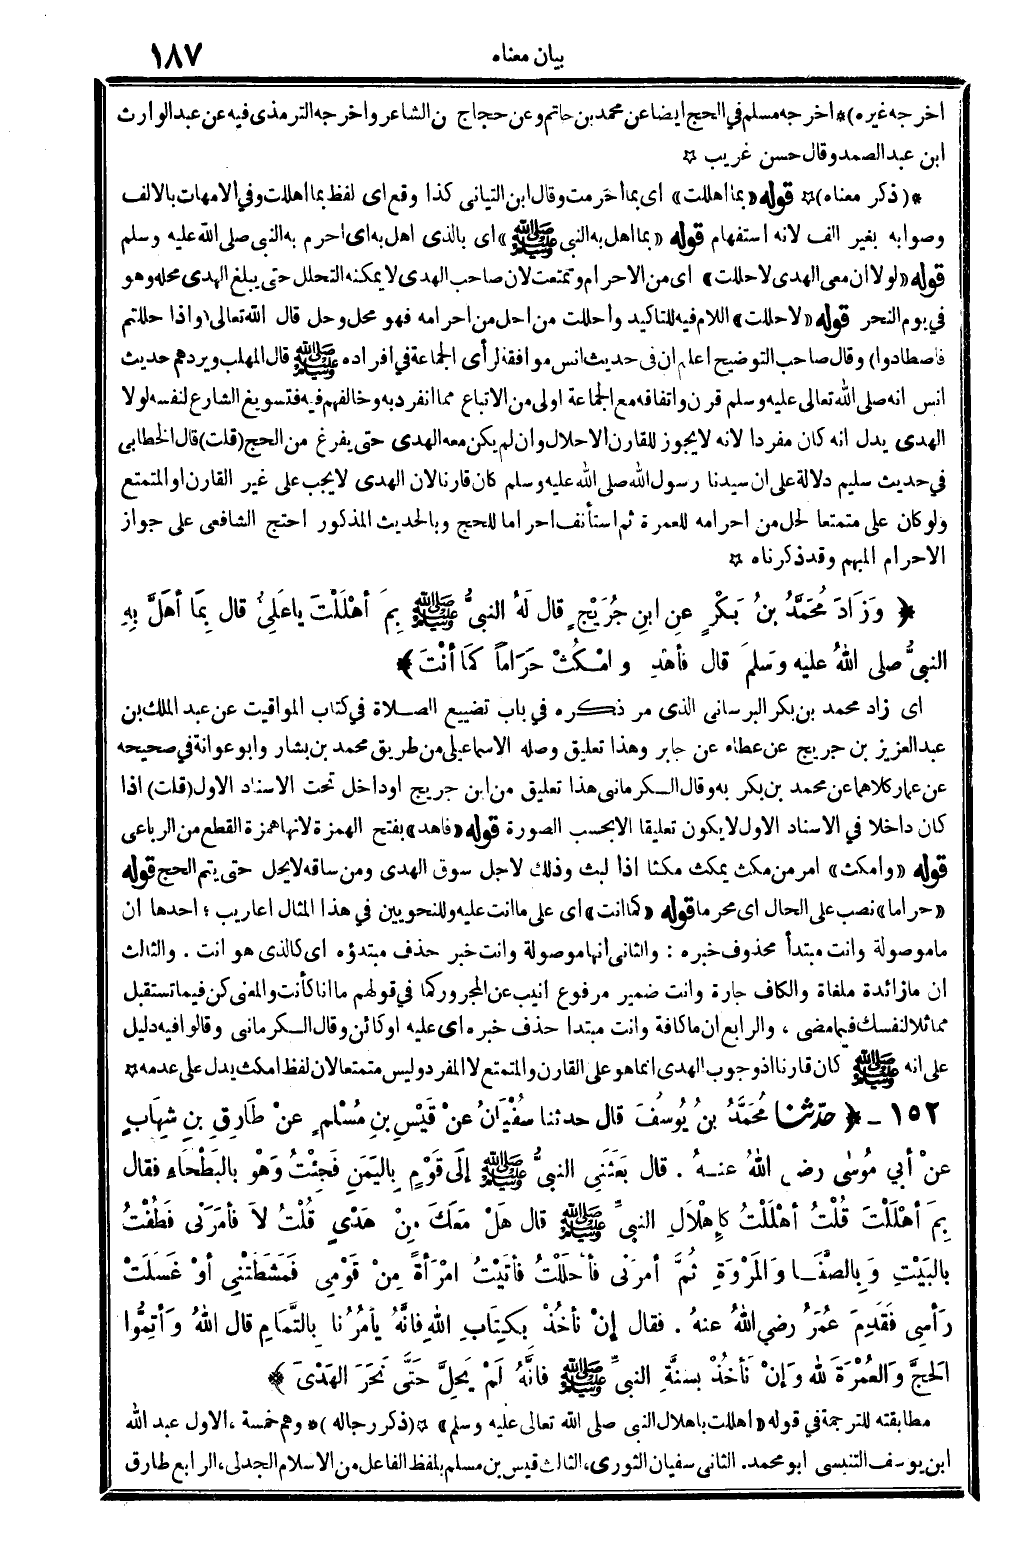 بيان معناه ١٨٧
اخرجه غيره)* اخرجه مسلم في الحج ايضا عن محمد بن حاتم وعن حجاج ن الشاعر واخرجه الترمذى فيه عن عبد الوارث
ابن عبد الصمد وقال حسن غريب ☆
*(ذكر معناه)☆ قوله «بما اهللت» اى بما أحرمت وقال ابن التيانى كذا وقع اى لفظ بما اهللت وفي الامهات بالالف
وصوابه بغير الف لانه استفهام قوله «بما اهل به النبي ﷺ» اى بالذى اهل به اى احرم به النبي صلى الله عليه وسلم
قوله «لولا أن معى الهدى لاحللت» اى من الاحرام وتمتعت لان صاحب الهدى لا يمكنه التحلل حتى يبلغ الهدى محله وهو
في يوم النحر قوله «لاحللت» اللام فيه للتاكيد وأحللت من احل من احرامه فهو محل وحل قال الله تعالى (واذا حللتم
فاصطادوا) وقال صاحب التوضيح اعلم ان فى حديث انس موافقة لرأى الجماعة في افراده ﷺ قال المهلب ويردهم حديث
انس انه صلى الله تعالى عليه وسلم قرن واتفاقه مع الجماعة اولى من الاتباع مما انفرد به وخالفهم فيه فتسويغ الشارع لنفسه لولا
الهدى يدل انه كان مفردا لانه لا يجوز للقارن الاحلال وان لم يكن معه الهدى حتى يفرغ من الحج (قلت) قال الخطابى
في حديث سليم دلالة على ان سيدنا رسول الله صلى الله عليه وسلم كان قارنا لان الهدى لا يجب على غير القارن او المتمتع
ولو كان على متمتعا لحل من احرامه للعمرة ثم استأنف احراما للحج وبالحديث المذكور احتج الشافعى على جواز
الاحرام المبهم وقد ذكرناه ☆
﴿ وَزَادَ مُحَمَّدُ بنُ بَكْرٍ عنِ ابنِ جُرَيْجٍ قال لَهُ النبىُّ ﷺ بِمَ أهْلَلْتَ ياعَلِىُّ قال بِمَا أهَلَّ بِهِ
النبىُّ صلى اللهُ عليه وسَلمَ قال فأهْدِ وامْكُثْ حَرَاماً كَمَا أنْتَ ﴾
اى زاد محمد بن بكر البرسانى الذى مر ذكره في باب تضييع الصلاة في كتاب المواقيت عن عبد الملك بن
عبد العزيز بن جريج عن عطاء عن جابر وهذا تعليق وصله الاسماعيلى من طريق محمد بن بشار وابو عوانة في صحيحه
عن عمار كلاهما عن محمد بن بكر به وقال الكرمانى هذا تعليق من ابن جريج اوداخل تحت الاسناد الاول (قلت) اذا
كان داخلا في الاسناد الاول لا يكون تعليقا الا بحسب الصورة قوله «فاهد» بفتح الهمزة لانها همزة القطع من الرباعى
قوله «وامكث» امر من مكث يمكث مكثا اذا لبث وذلك لاجل سوق الهدى ومن ساقه لا يحل حتى يتم الحج قوله
«حراما» نصب على الحال اى محرما قوله «كما انت» اى على ما انت عليه وللنحويين في هذا المثال اعاريب؛ احدها ان
ما موصولة وانت مبتدأ محذوف خبره: والثانى أنها موصولة وانت خبر حذف مبتدؤه اى كالذى هو انت. والثالث
ان ما زائدة ملغاة والكاف جارة وانت ضمير مرفوع انيب عن المجرور كما في قولهم ما انا كأنت والمعنى كن فيما تستقبل
مماثلا لنفسك فيما مضى، والرابع ان ما كافة وانت مبتدا حذف خبره اى عليه او كائن وقال الكرمانى وقالوا فيه دليل
على انه ﷺ كان قارنا اذ وجوب الهدى انما هو على القارن والمتمتع لا المفرد وليس متمتعا لان لفظ امكث يدل على عدمه ☆
١٥٢ ـ ﴿ حدّثنا مُحَمَّدُ بنُ يُوسُفَ قال حدثنا سفْيَانُ عنْ قَيْسِ بنِ مُسْلمٍ عنْ طَارِقِ بنِ شِهَابٍ
عنْ أبي مُوسٰى رضى اللهُ عنهُ. قال بَعَثَنِى النبىُّ ﷺ إلَى قَوْمٍ بِاليَمَنِ فَجِئْتُ وَهْوَ بالبَطْحَاءِ فقال
بِمَ أهْلَلْتَ قُلْتُ أهْلَلْتُ كَإِهْلَالِ النبىِّ ﷺ قال هَلْ مَعَكَ مِنْ هَدْىٍ قُلْتُ لاَ فأمَرَنى فَطُفْتُ
بالبَيْتِ وَبِالصَّفَا والمَرْوَةِ ثُمَّ أمرَنى فأحْلَلْتُ فأتَيْتُ امْرَأةً مِنْ قَوْمِى فَمَشَطَتْنِى أوْ غَسَلَتْ
رَأْسِى فَقَدِمَ عُمَرُ رضي اللهُ عنهُ. فقال إنْ نأخُذْ بِكِتَابِ اللهِ فإنَّهُ يأمُرُنا بالتَّمَامِ قال اللهُ وَأتِمُّوا
الحَجَّ والعُمْرَةَ لله وَإنْ نَأخُذْ بسنَّةِ النبىِّ ﷺ فانَّهُ لَمْ يَحِلَّ حَتَّى نَحَرَ الهَدْىَ ﴾
مطابقته للترجمة في قوله «اهللت باهلال النبى صلى الله تعالى عليه وسلم» ☆(ذكر رجاله)* وهم خمسة، الاول عبد الله
ابن يوسف التنيسى ابو محمد. الثانى سفيان الثورى، الثالث قيس بن مسلم بلفظ الفاعل من الاسلام الجدلى، الرابع طارق